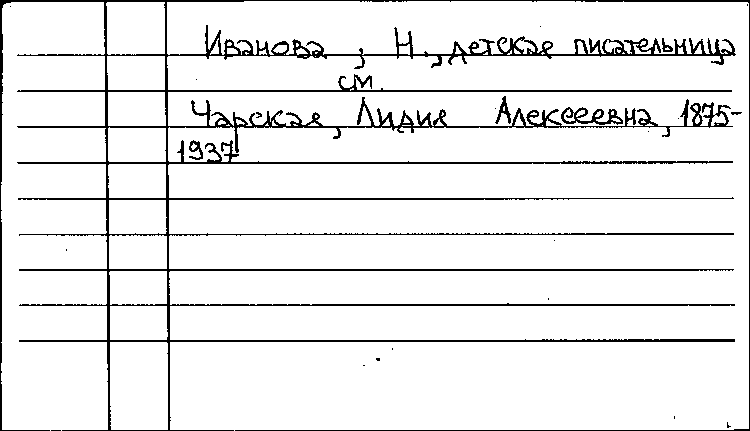 Иванова, Н., детская писательница
см.
Чарская, Лидия Алексеевна, 1875-
1937